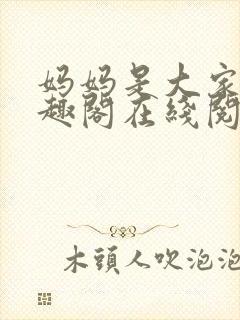 妈妈是大家
趣閣在綫閱
木頭人吹泡泡